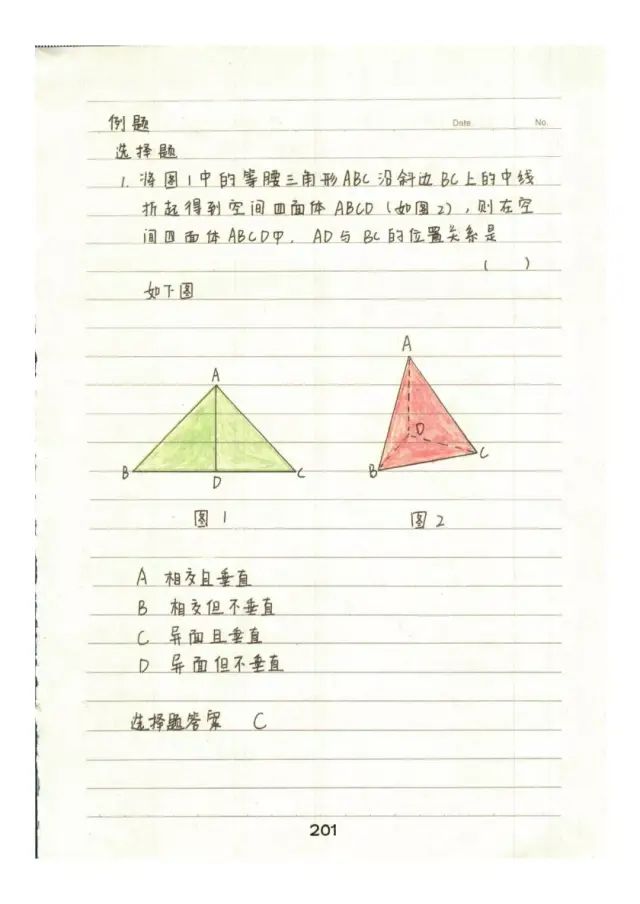 例题
Date. No.
选择题
1. 将图1中的等腰三角形ABC沿斜边BC上的中线
折起得到空间四面体ABCD(如图2),则在空
间四面体ABCD中,AD与BC的位置关系是
( )
如下图
A
A
D
B
C
B
D
C
图1
图2
A 相交且垂直
B 相交但不垂直
C 异面且垂直
D 异面但不垂直
选择题答案 C
201